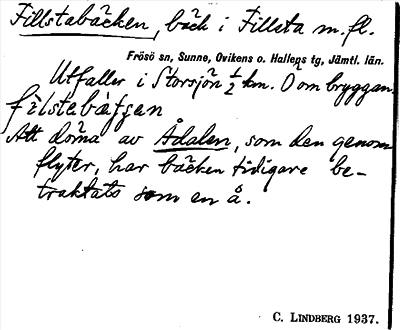 Fillstabäcken, bäck i Fillsta m.fl.
Frösö sn, Sunne, Ovikens o. Hallens tg, Jämtl. län.
Utfaller i Storsjön ½ km. O om bryggan.
Att döma av Ådalen, som den genom-
flyter, har bäcken tidigare be-
traktats som en å.
C. LINDBERG 1937.